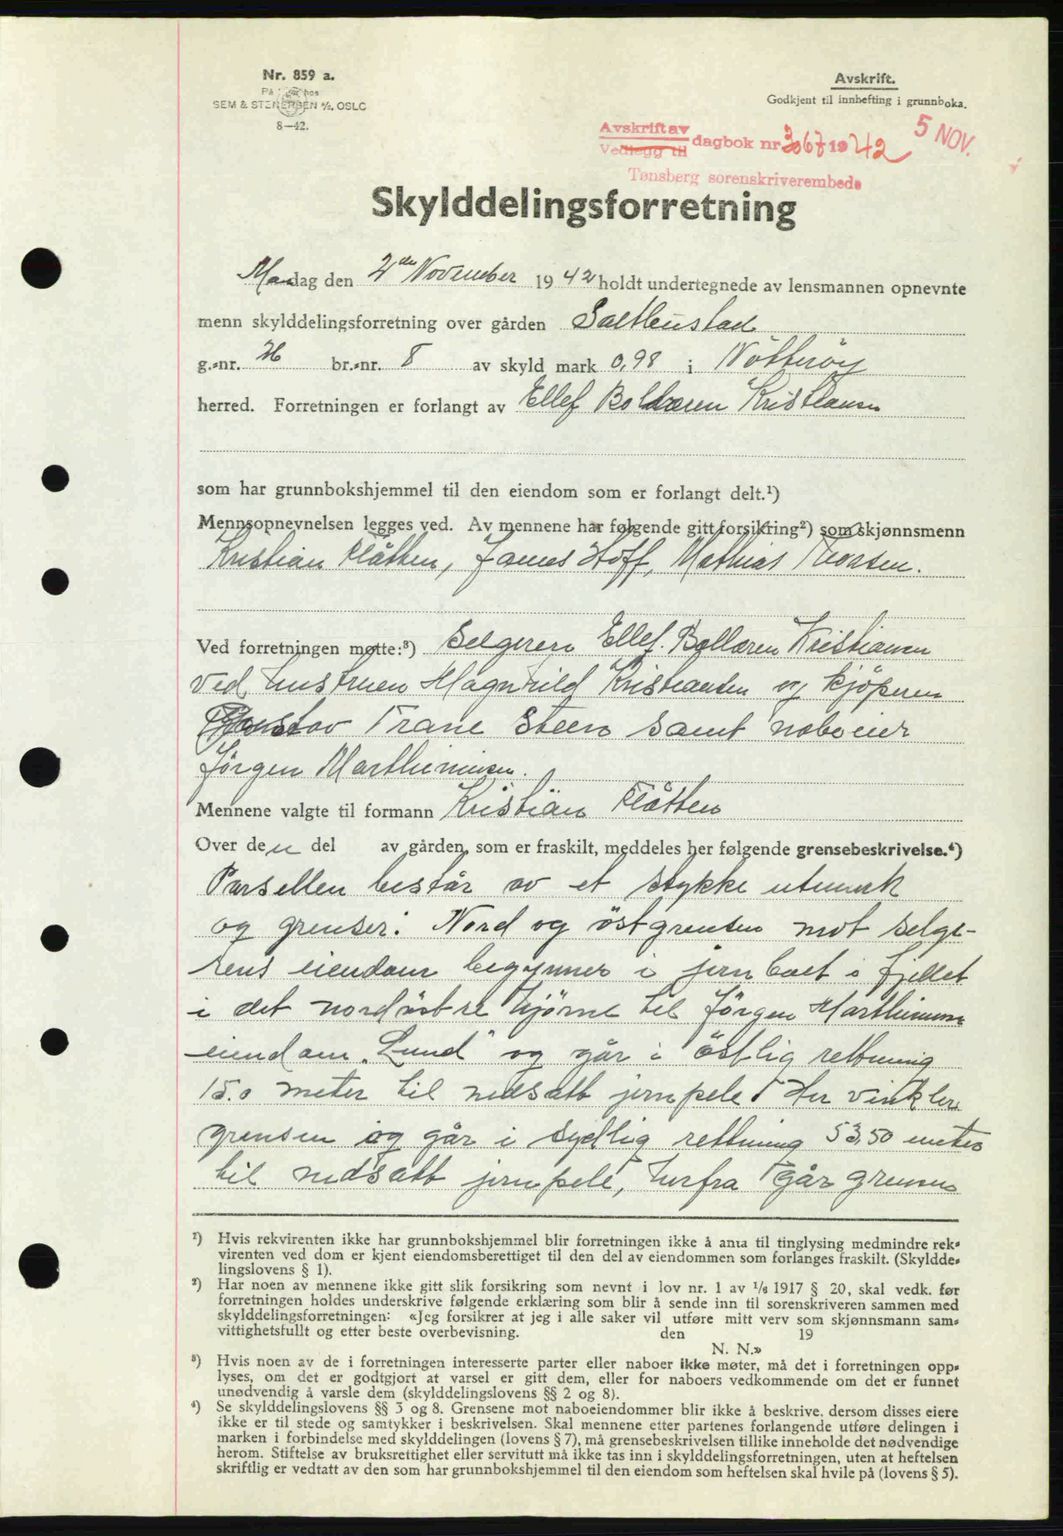 Nr. 859 a.
På lager hos
SEM & STENERSEN A/S, OSLO
8—42.
Avskrift.
Godkjent til innhefting i grunnboka.
Avskrift av
Vedlegg til dagbok nr 3067 1942 5 NOV.
Tønsberg sorenskriverembede
Skylddelingsforretning
Mandag den 2den November 1942 holdt undertegnede av lensmannen opnevnte
menn skylddelingsforretning over gården Saltbustad
g.-nr. 26 br.-nr. 8 av skyld mark 0,98 i Nötteröy
herred. Forretningen er forlangt av Ellef Bolæren Kristiansen
som har grunnbokshjemmel til den eiendom som er forlangt delt.¹)
Mennsopnevnelsen legges ved. Av mennene har følgende gitt forsikring²) som skjønnsmenn
Kristian Flåtten, James Hoff, Mathias Thorsen.
Ved forretningen møtte:³) Selgeren Ellef Bollæren Kristiansen
ved hustruen Magnhild Kristiansen og kjöperen
Gustav Trane Steen samt naboeier
Jörgen Marthinsen.
Mennene valgte til formann Kristian Flåtten
Over den del av gården, som er fraskilt, meddeles her følgende grensebeskrivelse.⁴)
Parsellen består av et stykke utmark
og grenser: Nord og östgrensen mot selge-
rens eiendom begynner i jernbolt i fjellet
i det nordöstre hjörne til Jörgen Marthinsens
eiendom „Lund" og går i östlig rettning
15.0 meter til nedsatt jernpele. Her vinkler
grensen og går i sydlig rettning 53,50 meter
til nedsatt jernpele, herfra går grensen
¹) Hvis rekvirenten ikke har grunnbokshjemmel blir forretningen ikke å anta til tinglysing medmindre rek-
virenten ved dom er kjent eiendomsberettiget til den del av eiendommen som forlanges fraskilt. (Skyldde-
lingslovens § 1).
²) Har noen av mennene ikke gitt slik forsikring som nevnt i lov nr. 1 av 1/6 1917 § 20, skal vedk. før
forretningen holdes underskrive følgende erklæring som blir å sende inn til sorenskriveren sammen med
skylddelingsforretningen: «Jeg forsikrer at jeg i alle saker vil utføre mitt verv som skjønnsmann sam-
vittighetsfullt og etter beste overbevisning. den 19
N. N.»
³) Hvis noen av de i forretningen interesserte parter eller naboer ikke møter, må det i forretningen opp-
lyses, om det er godtgjort at varsel er gitt dem, eller for naboers vedkommende om det er funnet
unødvendig å varsle dem (skylddelingslovens §§ 2 og 8).
⁴) Se skylddelingslovens §§ 3 og 8. Grensene mot naboeiendommer blir ikke å beskrive, dersom disses eiere
ikke er til stede og samtykker i beskrivelsen. Skal mennene etter partenes forlangende utføre delingen i
marken i forbindelse med skylddelingen (lovens § 7), må grensebeskrivelsen tillike inneholde det nødvendige
herom. Stiftelse av bruksrettighet eller servitutt må ikke tas inn i skylddelingsforretningen, uten at heftelsen
skriftlig er vedtatt av den som har grunnbokshjemmel til den eiendom som heftelsen skal hvile på (lovens § 5).